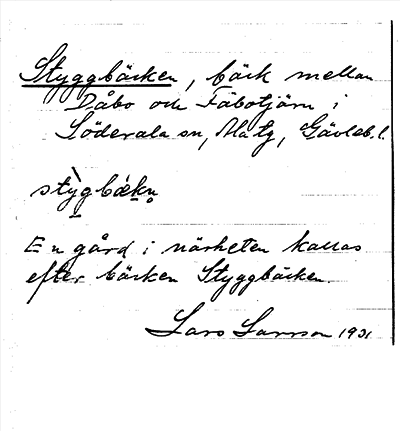 Styggbäcken, bäck mellan
Dåbo och Fäbotjärn i
Söderala sn, Ala tg, Gävleb. l.
stỳgbɛkn̥
En gård i närheten kallas
efter bäcken Styggbäcken.
Lars Larsson 1931